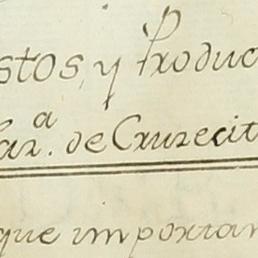 stos, y Produc
Haz.ª de Cruzecit
que importan